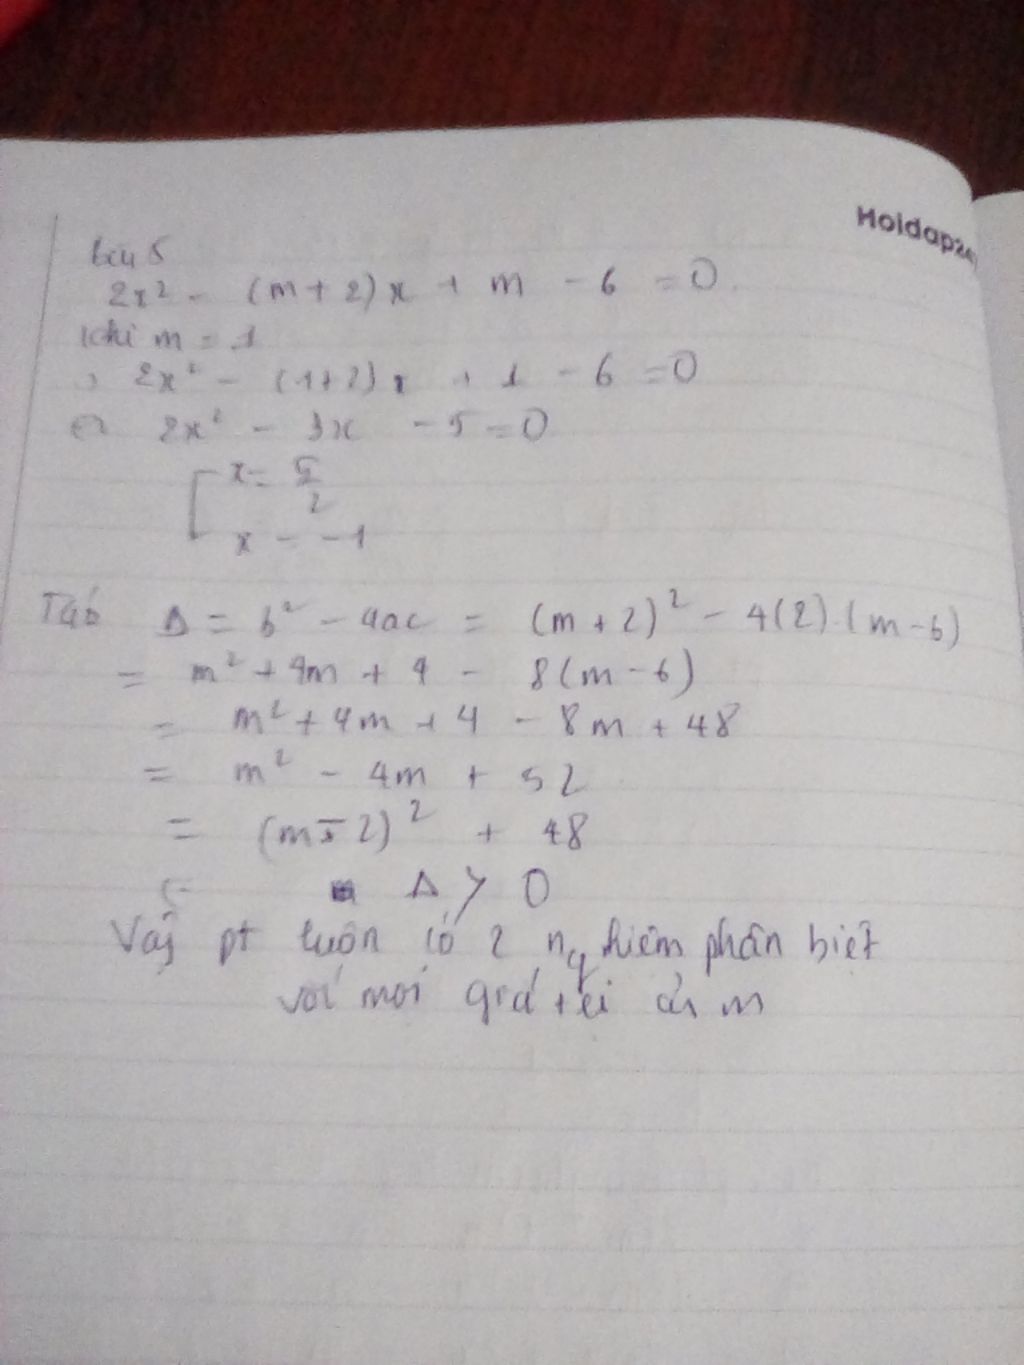 Holdap24
câu 5
2x² - (m+2)x + m - 6 = 0
khi m = 1
2x² - (1+2)x + 1 - 6 = 0
⇔ 2x² - 3x - 5 = 0
x = 5/2
x = -1
Δ = b² - 4ac = (m+2)² - 4(2).(m-6)
= m² + 4m + 4 - 8(m-6)
= m² + 4m + 4 - 8m + 48
= m² - 4m + 52
= (m-2)² + 48
Δ > 0
Vậy pt luôn có 2 nghiêm phân biêt
với moi giá m